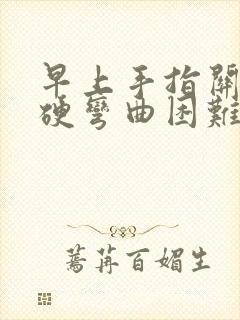 早上手指關
硬彎曲困難
蔫苒百媚生